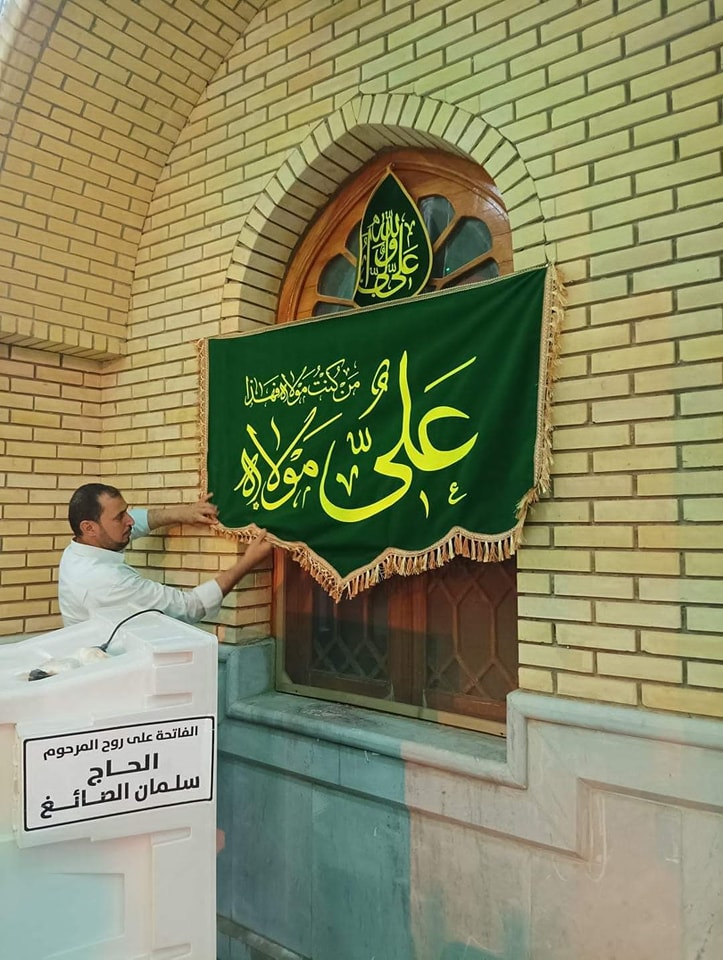 علي ولي الله
من كنت مولاه فهذا
عليٌّ مولاه
الفاتحة على روح المرحوم
الحـاج
سلمان الصائـغ